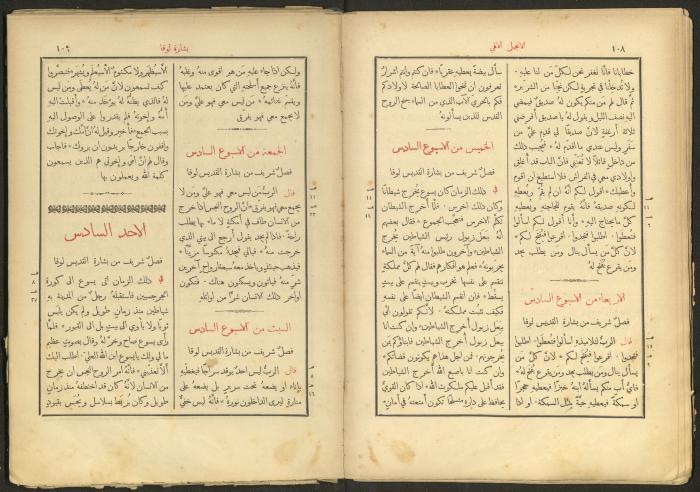 ١٠٨
الانجيل الالهي
خطايانا فانَّا نغفر نحن لكلّ مَن لنا عليهِ ٠
ولا تُدخِلنا في تجربةٍ لكن نجّنا من الشرير٭
ثم قال لهم مَن منكم يكون لهُ صديقٌ فيمضي
اليهِ نصف الليل ويقول لهُ يا صديق أقرضني
ثلاثة أرغفةٍ لانَّ صديقًا لي قدِم عليَّ من
سفرٍ وليس عندي ما اقدّم لهُ٭ فيُجيب ذلك
من داخل قائلًا لا تُعَنِّني فانَّ الباب قد أُغلق
واولادي معي في الفراش فلا استطيع ان اقوم
وأعطيك٭ اقول لكم انهُ ان لم يقُمْ ويُعطيهِ
لكونهِ صديقهُ فانَّهُ يقوم للجاجتهِ ويُعطيهِ
كلَّ ما يحتاج اليهِ٭ وأنا أقول لكم اسألوا
فتُعطَوا٠ اطلبوا فتجدوا٠ اقرعوا فيُفتَح لكم٭
لانَّ كلّ مَن يسأل ينال ومَن يطلب يجد
ومَن يقرع يُفتَح لهُ
الاربعاء من الاسبوع السادس
فصلٌ شريف من بشارة القديس لوقا
قال الربُّ لتلاميذهِ اسألوا فتُعطَوا٠ اطلبوا
فتجدوا٠ اقرعوا فيُفتَح لكم٭ لانَّ كلَّ مَن
يسأل ينال ومَن يطلب يجد ومَن يقرع يُفتَح لهُ٭
فايُّ أبٍ منكم يسألهُ ابنهُ خبزًا فيعطيهِ حجرًا
او سمكةً فيعطيهِ حيَّةً بدل السمكة٠ او اذا
سأل بيضةً يعطيهِ عقربًا٭ فان كنتم وانتم اشرارٌ
تعرفون ان تمنحوا العطايا الصالحة لاولادكم
فكم بالحريّ الآب الذي من السماء يمنح الروح
القدس للذين يسألونهُ
الخميس من الاسبوع السادس
فصلٌ شريف من بشارة القديس لوقا
في ذلك الزمان كان يسوع يُخرج شيطانًا
وكان ذلك اخرس٠ فلمَّا أخرج الشيطان
تكلّم الاخرس فتعجَّب الجموع٭ فقال بعضهم
انهُ ببعل زبول رئيس الشياطين يُخرج
الشياطين٭ وآخرون طلبوا منهُ آيةً من السماء
يجرّبونهُ٭ فعلم هو افكارهم فقال لهم كلُّ مملكةٍ
تنقسم على نفسها تخرب وبيتٍ ينقسم على بيتٍ
يسقط٭ فان انقسم الشيطان ايضًا على نفسهِ
فكيف تثبت مملكتهُ٠ لانكم تقولون اني
ببعل زبول أخرج الشياطين٭ وان كنت انا
ببعل زبول أُخرج الشياطين فابناؤكم بمَن
يخرجونهم٠ فمن اجل هذا هم يحكمون عليكم٭
وان كنت انا باصبع الله أُخرج الشياطين
فقد أقبل عليكم ملكوت الله٭ اذا كان القويُّ
يحافظ على دارهِ متسلحًا تكون أمتعتهُ في أمانٍ٭
بشارة لوقا
١٠٩
ولكن اذا جاء عليهِ مَن هو اقوى منهُ وغلبهُ
فانَّهُ ينزع جميع أسلحتهِ التي كان يعتمد عليها
ويقسم غنائمهُ٭ مَن ليس معي فهو عليَّ ومَن
لا يجمع معي فهو يفرق
الجمعة من الاسبوع السادس
فصلٌ شريف من بشارة القديس لوقا
قال الربُّ مَن ليس معي فهو عليَّ ومَن لا
يجمع معي فهو يفرق٭ انَّ الروح النجس اذا خرج
من الانسان طاف في امكنةٍ لا ماء بها يطلب
راحةً٠ فاذا لم يجد يقول أرجع الى بيتي الذي
خرجت منهُ٭ فيأتي فيجدهُ مكنوسًا مزيَّنًا٭
فيذهب حينئذٍ ويأخذ معهُ سبعة ارواحٍ آخرين
شرٍّ منهُ فيأتون ويسكنون هناك٠ فتكون
اواخر ذلك الانسان شرًّا من اوائلهِ
السبت من الاسبوع السادس
فصلٌ شريف من بشارة القديس لوقا
قال الربُّ ليس احدٌ يوقد سراجًا فيغطيهِ
باناءٍ او يضعهُ تحت سريرٍ بل يضعهُ على
منارةٍ ليرى الداخلون نورهُ٭ فانَّهُ ليس خفيٌّ
الَّا سيظهر ولا مكتومٌ الَّا سيُعلَم ويُشهَر٭ فتبصَّروا
كيف تسمعون لانَّ مَن لهُ يُعطى ومَن ليس
لهُ فالذي يظنُّهُ لهُ يؤخذ منهُ٭ وأقبلت اليهِ
أُمهُ وإخوتهُ فلم يقدروا على الوصول اليهِ
لسبب الجمع٭ فأُخبر وقيل لهُ انَّ أمَّك وإخوتك
واقفون خارجًا يريدون ان يروك٭ فاجاب
وقال لهم انَّ أمي وإخوتي هم الذين يسمعون
كلمة الله ويعملون بها
الاحد السادس
فصلٌ شريف من بشارة القديس لوقا
في ذلك الزمان أتى يسوع الى كورة
الجرجسيين فاستقبلهُ رجلٌ من المدينة بهِ
شياطين منذ زمانٍ طويل ولم يكن يلبس
ثوبًا ولا يأوي الى بيتٍ بل الى القبور٭ فلمَّا
رأى يسوع صاح وخرَّ لهُ وقال بصوتٍ عظيمٍ
ما لي ولك يا يسوع ابن الله العليّ٠ اطلب اليك
ألَّا تعذبني٭ فانَّهُ امر الروح النجس ان يخرج
من الانسان لانَّهُ كان قد اختطفهُ منذ زمانٍ
طويل وكان يُربَط بسلاسل ويُحبَس بقيودٍ